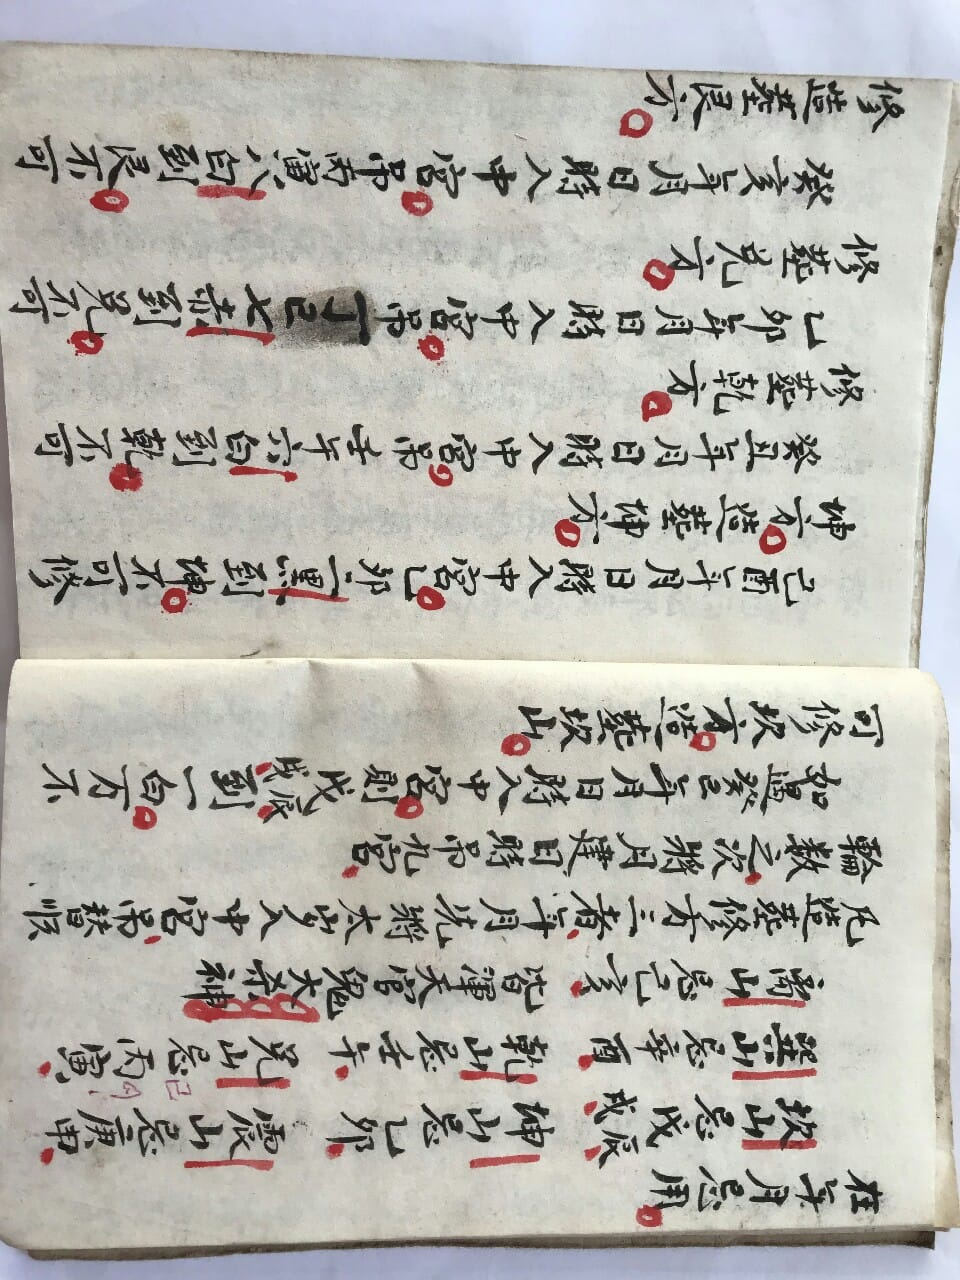 在年月忌用
坎山忌戊辰戌 坤山忌乙卯 震山忌庚申
巽山忌辛酉 乾山忌壬午 兑山忌丙寅
離山忌己亥 皆渾天官鬼大杀神
凡造塟修方三者年月先將太岁入中宮吊替順
輪数之次將月建日時吊九宮
如遇癸巳年月日時入中宮則戊辰戌到一白万不
可修坎方造塟坎山
己酉年月日時入中宮乙卯二黒到坤不可修
坤方造塟坤方
癸丑年月日時入中宮吊壬午六白到乾不可
修塟乾方
乙卯年月日時入中宮吊丁巳七赤到兑不可
修塟兑方
癸亥年月日時入中宮吊丙寅八白到艮不可
修造塟艮方